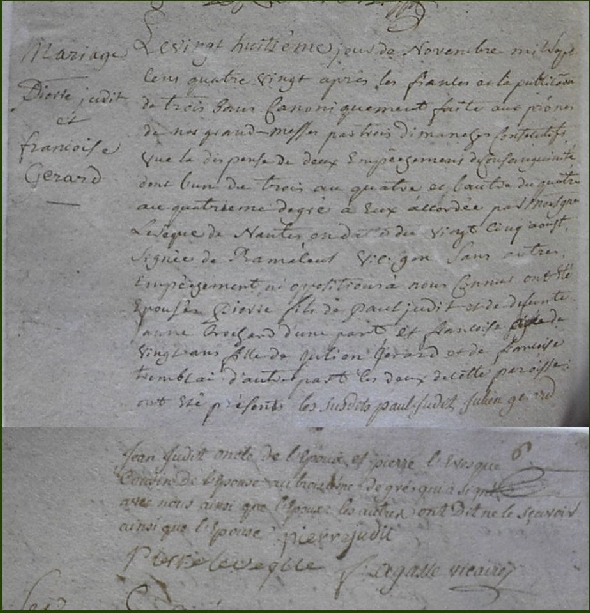 Mariage
Pierre judit
et
francoise
Gerard
Le vingt huitième jour de Novembre mil sept
cens quatre vingt après les fiancailles et la publication
de trois bans Canoniquement faite aux prones
de nos grand-messes par trois dimanches consecutifs
vue la dispense de deux Empêchemens de consanguinité
dont l'un du trois au quatre et l'autre du quatre
au quatrieme degré à Eux accordée par Monsgr
L'evêque de Nantes, en date du vingt cinq
signée de vic. gen. sans autre
Empêchement ni opposition à nous Connus ont été
Epousés Pierre fils de Paul judit et de defunte
anne Brochard d'une part Et francoise agée de
vingt ans fille de Julien Gerard et de francoise
tremblai d'autre part les deux de cette paroisse;
ont été présents les susdits paul judit Julien gerard
Jean Judit oncle de l'Epoux et pierre l'Evesque
Cousin de l'Epouse au troisieme degré qui a signé
avec nous ainsi que l'Epoux les autres ont Dit ne le sçavoir
ainsi que l'Epouse pierre judit
Pierre leveque Lagasse vicaire